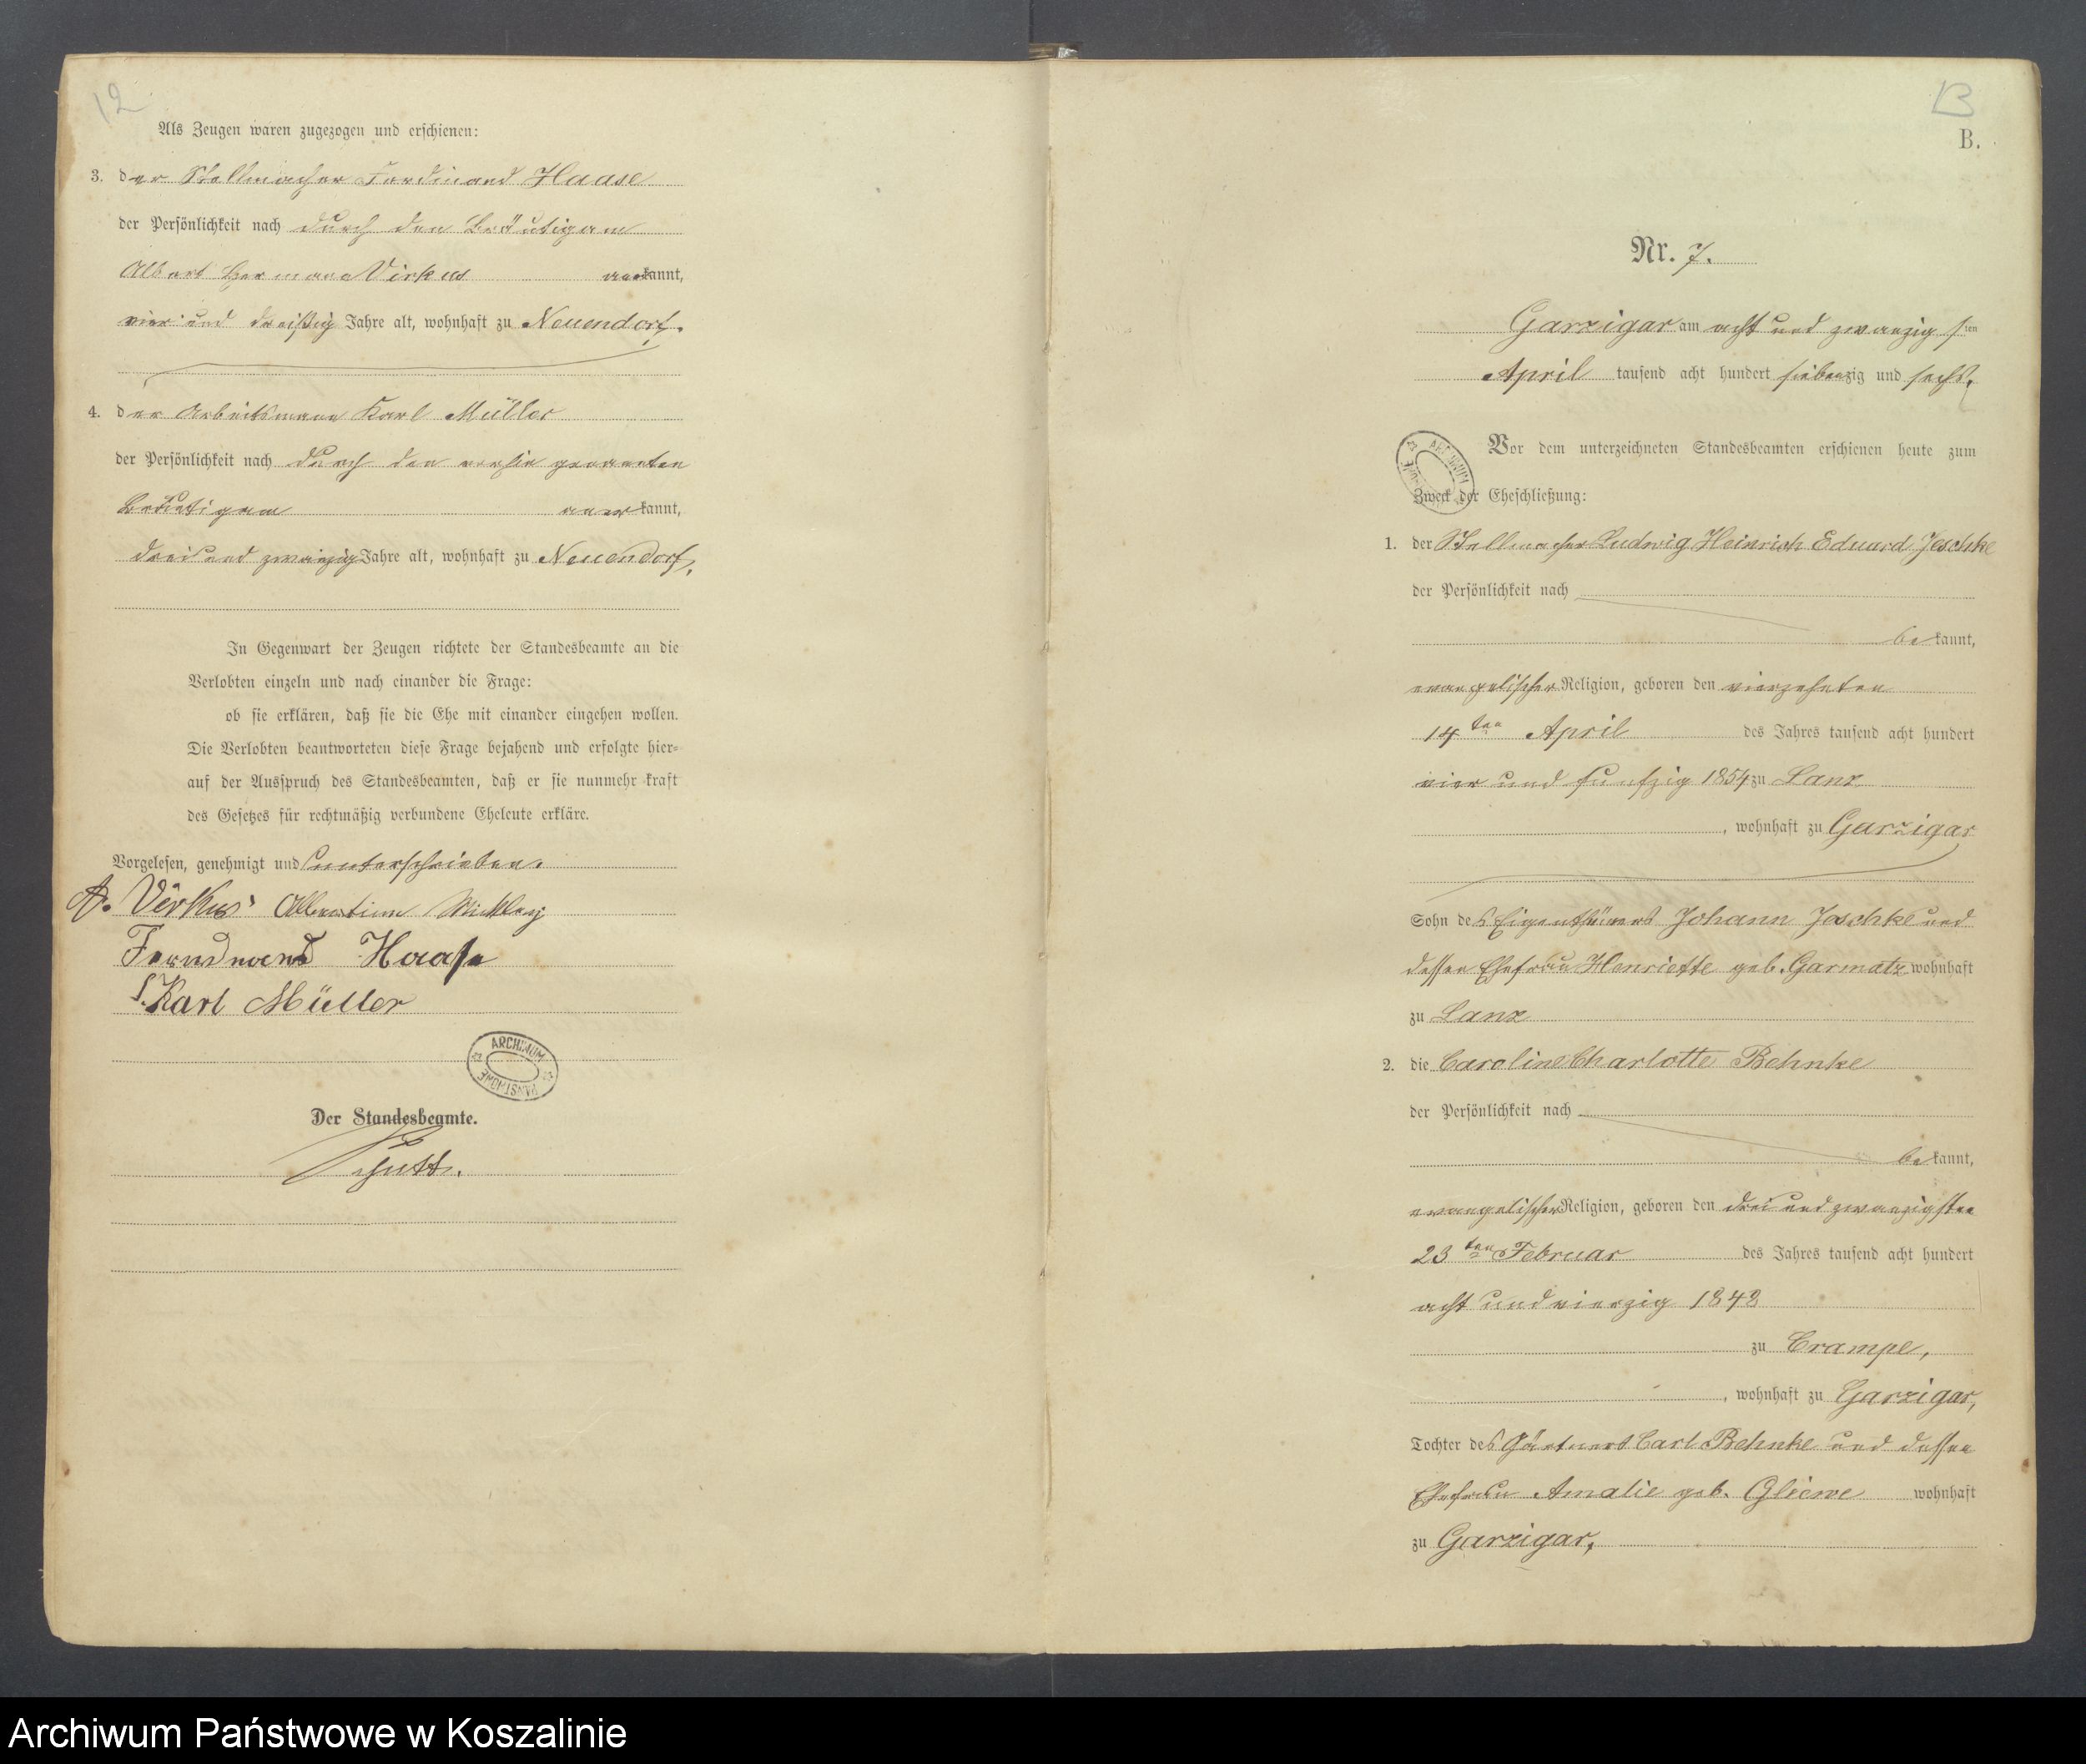 12
Als Zeugen waren zugezogen und erschienen:
3. der Stellmacher Ferdinand Haase
der Persönlichkeit nach durch den Bräutigam
Albert Hermann Virkus anerkannt,
vier und dreißig Jahre alt, wohnhaft zu Neuendorf.
4. der Arbeitsmann Karl Müller
der Persönlichkeit nach durch den vorhin genannten
Bräutigam anerkannt,
drei und zwanzig Jahre alt, wohnhaft zu Neuendorf,
In Gegenwart der Zeugen richtete der Standesbeamte an die
Verlobten einzeln und nach einander die Frage:
ob sie erklären, daß sie die Ehe mit einander eingehen wollen.
Die Verlobten beantworteten diese Frage bejahend und erfolgte hier=
auf der Ausspruch des Standesbeamten, daß er sie nunmehr kraft
des Gesetzes für rechtmäßig verbundene Eheleute erkläre.
Vorgelesen, genehmigt und unterschrieben.
A. Virkus Albertine
Haase
Karl Müller
ARCHIWUM PAŃSTWOWE
Der Standesbeamte.
13
B.
Nr. 7.
Garzigar am acht und zwanzigsten
April tausend acht hundert siebenzig und sechs.
Vor dem unterzeichneten Standesbeamten erschienen heute zum
Zweck der Eheschließung:
ARCHIWUM
1. der Stellmacher Ludwig Heinrich Eduard Jeschke
der Persönlichkeit nach
bekannt,
evangelischer Religion, geboren den vierzehnten
14ten April des Jahres tausend acht hundert
vier und funfzig 1854 zu Lanz
, wohnhaft zu Garzigar
Sohn des Eigenthümers Johann Jeschke und
dessen Ehefrau Henriette geb. Garmatz wohnhaft
zu Lanz
2. die Caroline Charlotte Behnke
der Persönlichkeit nach
bekannt,
evangelischer Religion, geboren den drei und zwanzigsten
23ten Februar des Jahres tausend acht hundert
acht und vierzig 1848
zu Crampe,
, wohnhaft zu Garzigar,
Tochter des Gärtners Carl Behnke und dessen
Ehefrau Amalie geb. Gliewe wohnhaft
zu Garzigar,
Archiwum Państwowe w Koszalinie